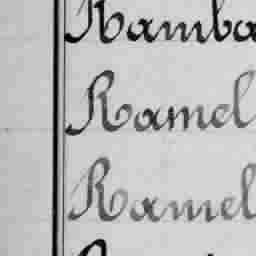 Ramba
Ramel
Ramel